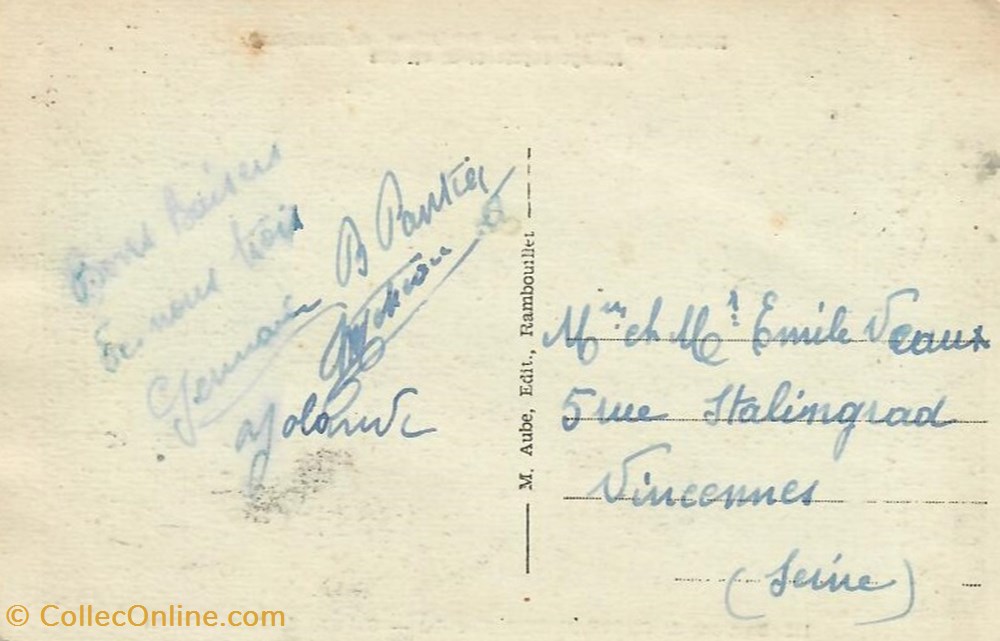 Bons Baisers
de nous trois
Germaine
B Pantin
Yolande
M. Aube, Edit., Rambouillet
Mme et Mr Emile Veaux
5 rue Stalingrad
Vincennes
(Seine)
© CollecOnline.com